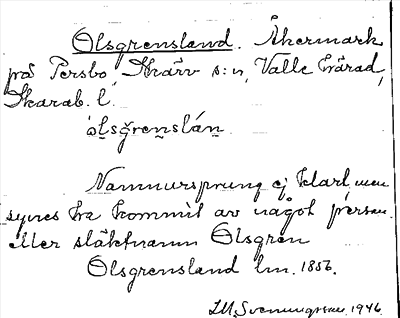 Olsgrensland. Åkermark
på Persbo Skärv s:n, Valle härad,
Skarab. l.
ọlsǧrenslán
Namnursprung ej klart, men
synes ha kommit av något person-
eller släktnamn Olsgren
Olsgrensland lm. 1856.
I.M. Svenungsson 1946